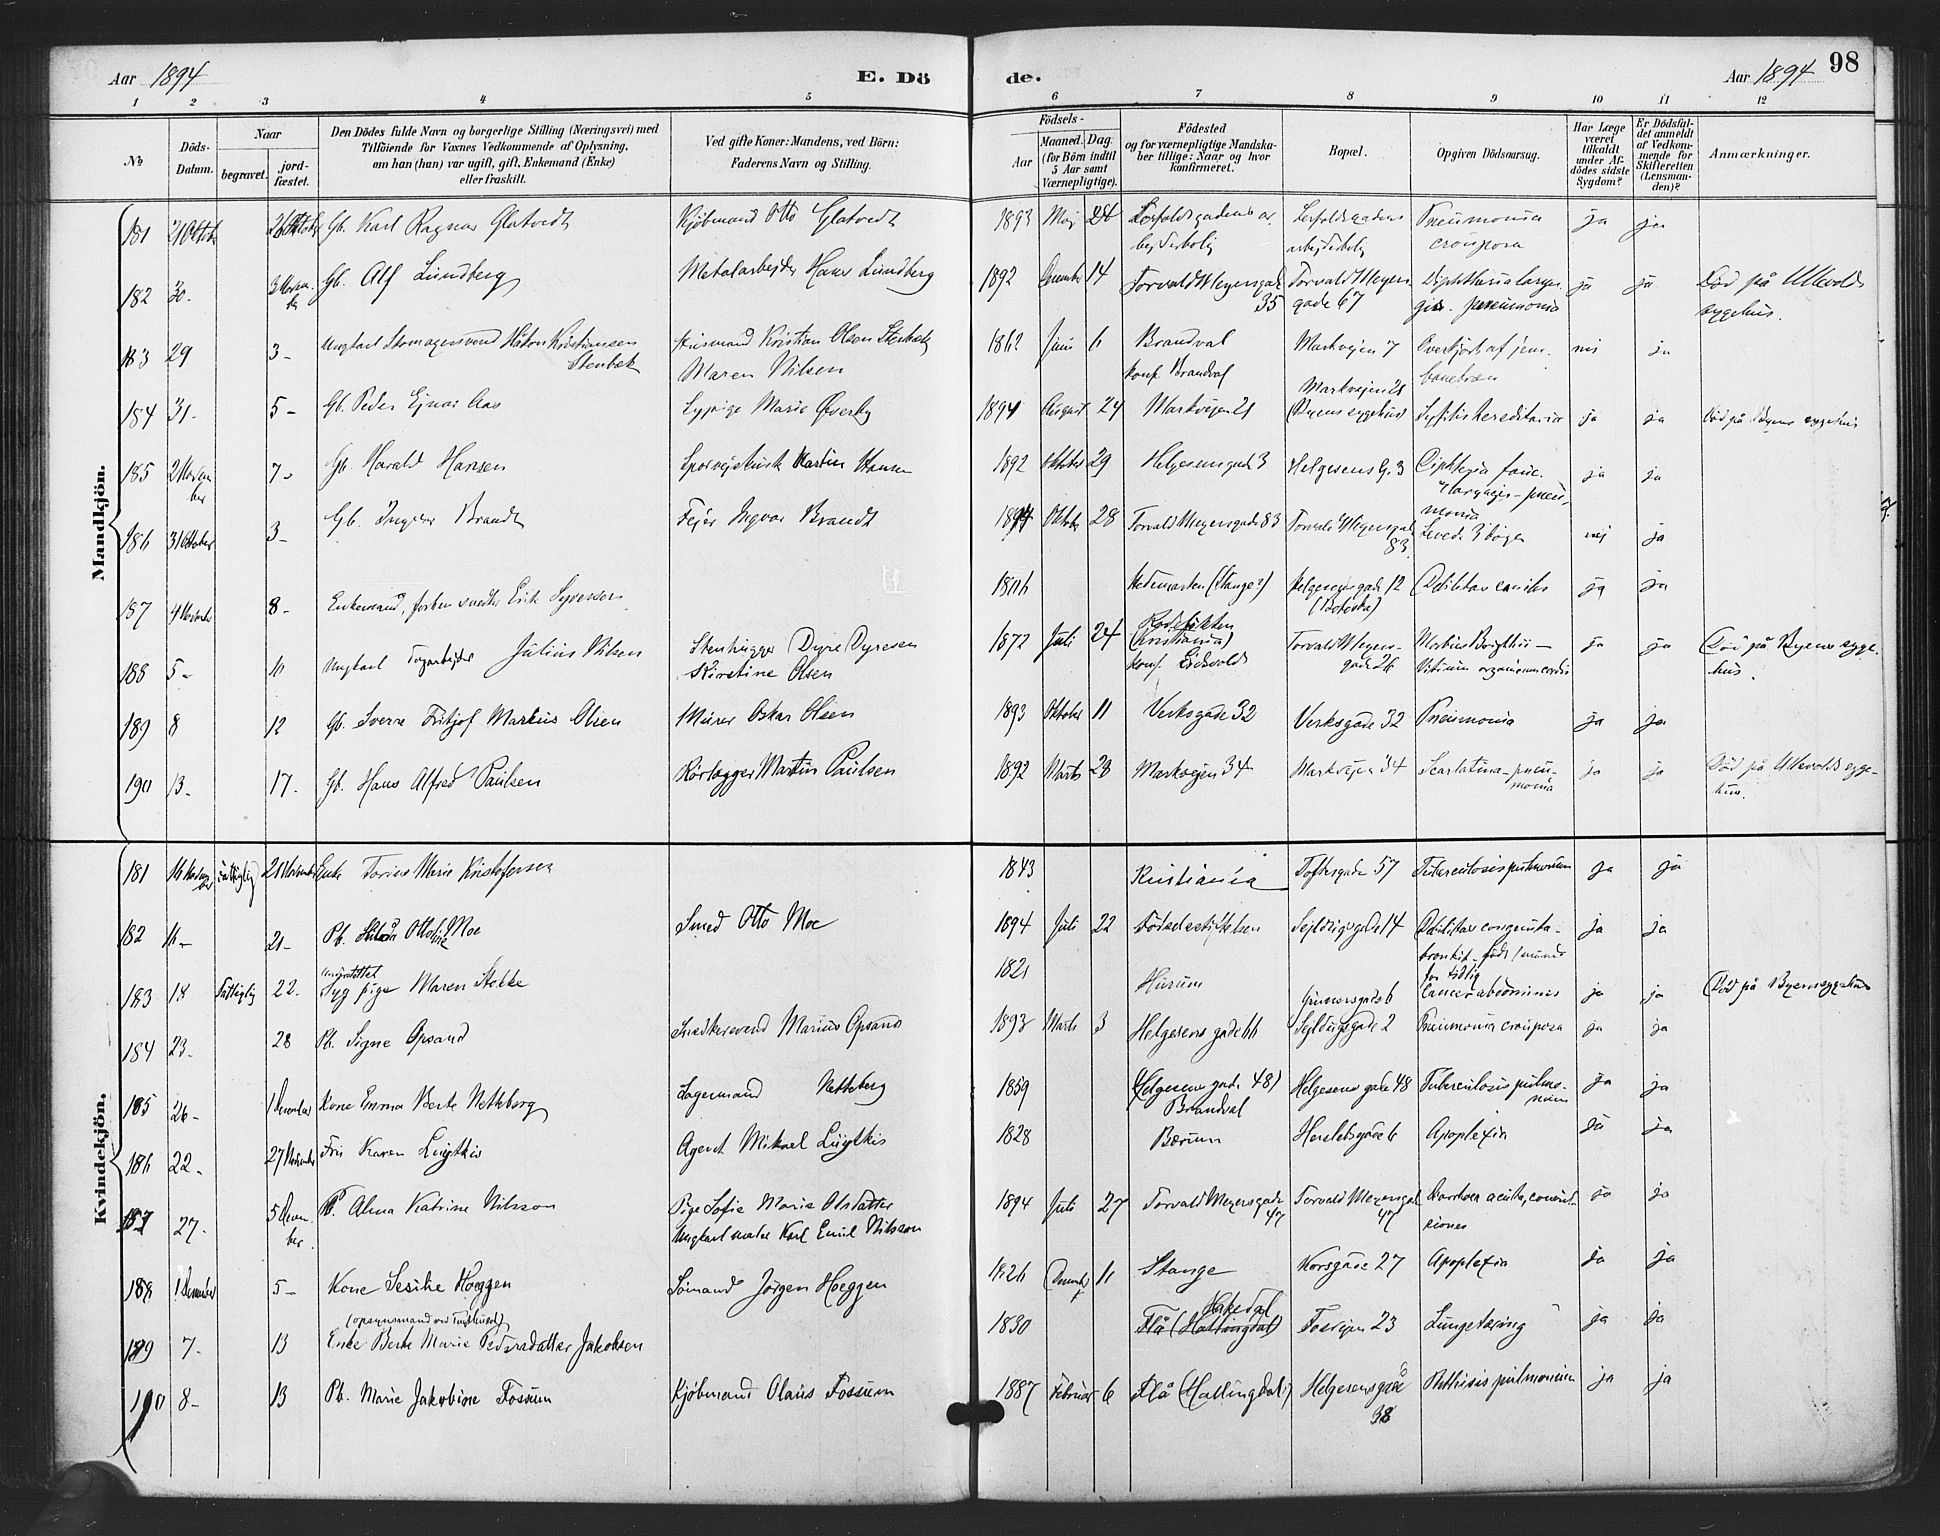 Aar 1894
E. Dö
de.
Aar 1894 98
1 2 3 4 5 6 7 8 9 10 11 12
No
Döds-Datum.
Naar
begravet.
jord-fæstet.
Den Dödes fulde Navn og borgerlige Stilling (Næringsvei) med
Tilföiende for Voxnes Vedkommende af Oplysning,
om han (hun) var ugift, gift, Enkemand (Enke)
eller fraskilt.
Ved gifte Koner: Mandens, ved Börn:
Faderens Navn og Stilling.
Födsels-
Aar
Maaned. Dag.
(for Börn indtil
5 Aar samt
Værnepligtige).
Födested
og for værnepligtige Mandska-
ber tillige: Naar og hvor
konfirmeret.
Bopæl.
Opgiven Dödsaarsag.
Har Læge
været
tilkaldt
under Af-
dödes sidste
Sygdom?
Er Dödsfal-
det anmeldt
af Vedkom-
mende for
Skifteretten
(Lensman-
den)?
Anmærkninger.
Mandkjön.
181 21 Gb. Karl Ragnar Glatvedt Kjöbmand Otto Glatvedt 1893 Maj 24 Pneumonia crouposa ja ja
182 30. Gb. Alf Lundberg Metalarbejder Hans Lundberg 1892 14 Torvald Meyersgade 35 Torvald Meyers gade 67 pneumonia ja ja Död på Ullevolds sygehus.
183 29 3- Ungkarl Stenbæk Kristian Olsen Stenbæk Maren Nilsen 1862 Juni 6 Brandval konf. Brandval Markvejen 7 Overkjört af jern- banetræn nej ja
184 31. 5- Gb. Peder Ejnar Aas Marie Överby 1894 August 24 Markvejen 21 Markvejen 21 (Byens sygehus) Syfilis hereditaria ja ja Död på Byens sygehus
185 2 November 7- Gb. Harald Hansen Martin Hansen 1892 Oktober 29 Helgesensgade 3 Helgesens G. 3 pneu- monia ja ja
186 31 Oktober 3- Gb. Ingvar Brandt Ingvar Brandt 1894 Oktober 28 Torvald Meyersgade 83 Torvald Meyersgade 83 Levede 3 dage nej ja
187 4 November 8- Enkemand, Erik Syversen Hedemarken (Stange?) Helgesens gade 12 Debilitas senilis ja ja
188 5- 10 Ungkarl Julius Nilsen Stenhugger Dyre Dyresen Kirstine Olsen 1872 Juli 24 (Kristiania) konf. Eidsvold Torvald Meyers- gade 26 Morbus Brightii - Vitium organicum cordis ja ja Död på Byens syge- hus.
189 8 12 Gb. Sverre Fritjof Markus Olsen Murer Oskar Olsen 1893 Oktober 11 Verksgade 32 Verksgade 32 Pneumonia ja ja
190 13- 17. Gb. Hans Alfred Paulsen Rörlægger Martin Paulsen 1892 Marts 23 Markvejen 34 Markvejen 34 Scarlatina - pneu- monia ja ja Död på Ullevolds syge- hus.
Kvindekjön.
181 16 November fattiglig 21 November Enke Marie Kristofersen 1843 Kristiania Toftesgade 57 Tuberculosis pulmonum ja ja
182 21- Pb. Ottobine Moe Smed Otto Moe 1894 Juli 22 Födselsstiftelsen Sejldugsgade 14 Debilitas congenita - bronkit - födt 1 måned for tidlig ja ja
183 18 Fattiglig 22. understöttet Sypige Maren Stokke 1821 Hurum Cancer abdominis ja ja Död på Byens sygehus
184 23- 28 Pb. Signe Opsand Snedkersvend Marius Opsand 1893 Marts 3 Helgesens gade Sejldugsgade 2 Pneumonia crouposa ja ja
185 26- 1 December Kone Emma Berte Netteberg Lagermand Netteberg 1859 (Helgesens gade 48) Brandval Helgesens gade 48 Tuberculosis pulmo- num ja ja
186 22- 27 November Fru Karen Lygtkis Agent Mikael Lygtkis 1828 Bærum Herslebsgade 6 Apoplexia ja ja
187 27- 5 Decem- ber. Pb. Alma Katrine Nilsson Pige Sofie Marie Olsdatter Ungkarl Karl Emil Nilsson 1894 Juli 27 Torvald Meyersgade 47 Torvald Meyersgade 47 Diarrhoea acuta, ja ja
188 1 December 5- Kone Hoeggen Sömand Jörgen Hoeggen 1826 December 11 Stange Korsgade 27 Apoplexia ja ja
189 7- 13 Enke Berte Marie Pedersdatter Jakobsen 1830 Hakedal Flå (Hallingdal) Fossvejen 23 Lungetæring ja ja
190 8- 13 Pb. Marie Jakobine Fossum Kjöbmand Olaus Fossum 1887 Februar 6 Flå (Hallingdal) Helgesensgade 38 Phthisis pulmonum ja ja